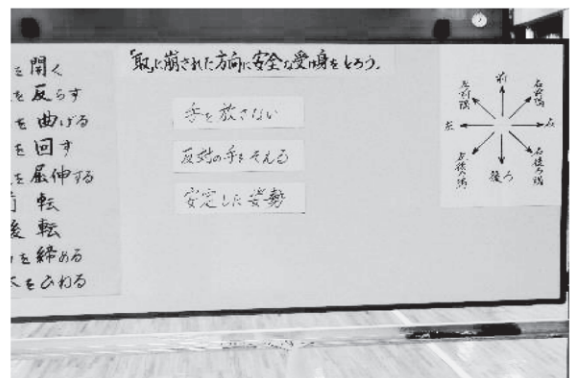 を開く
を反らす
を曲げる
を回す
を屈伸する
転
後転
を締める
をひねる
「取」に崩された方向に安全な受け身をとろう。
を放さない
反対の手をそえる
安定した姿勢
前
左前隅
右前隅
左
右
左後ろ隅
右後ろ隅
後ろ